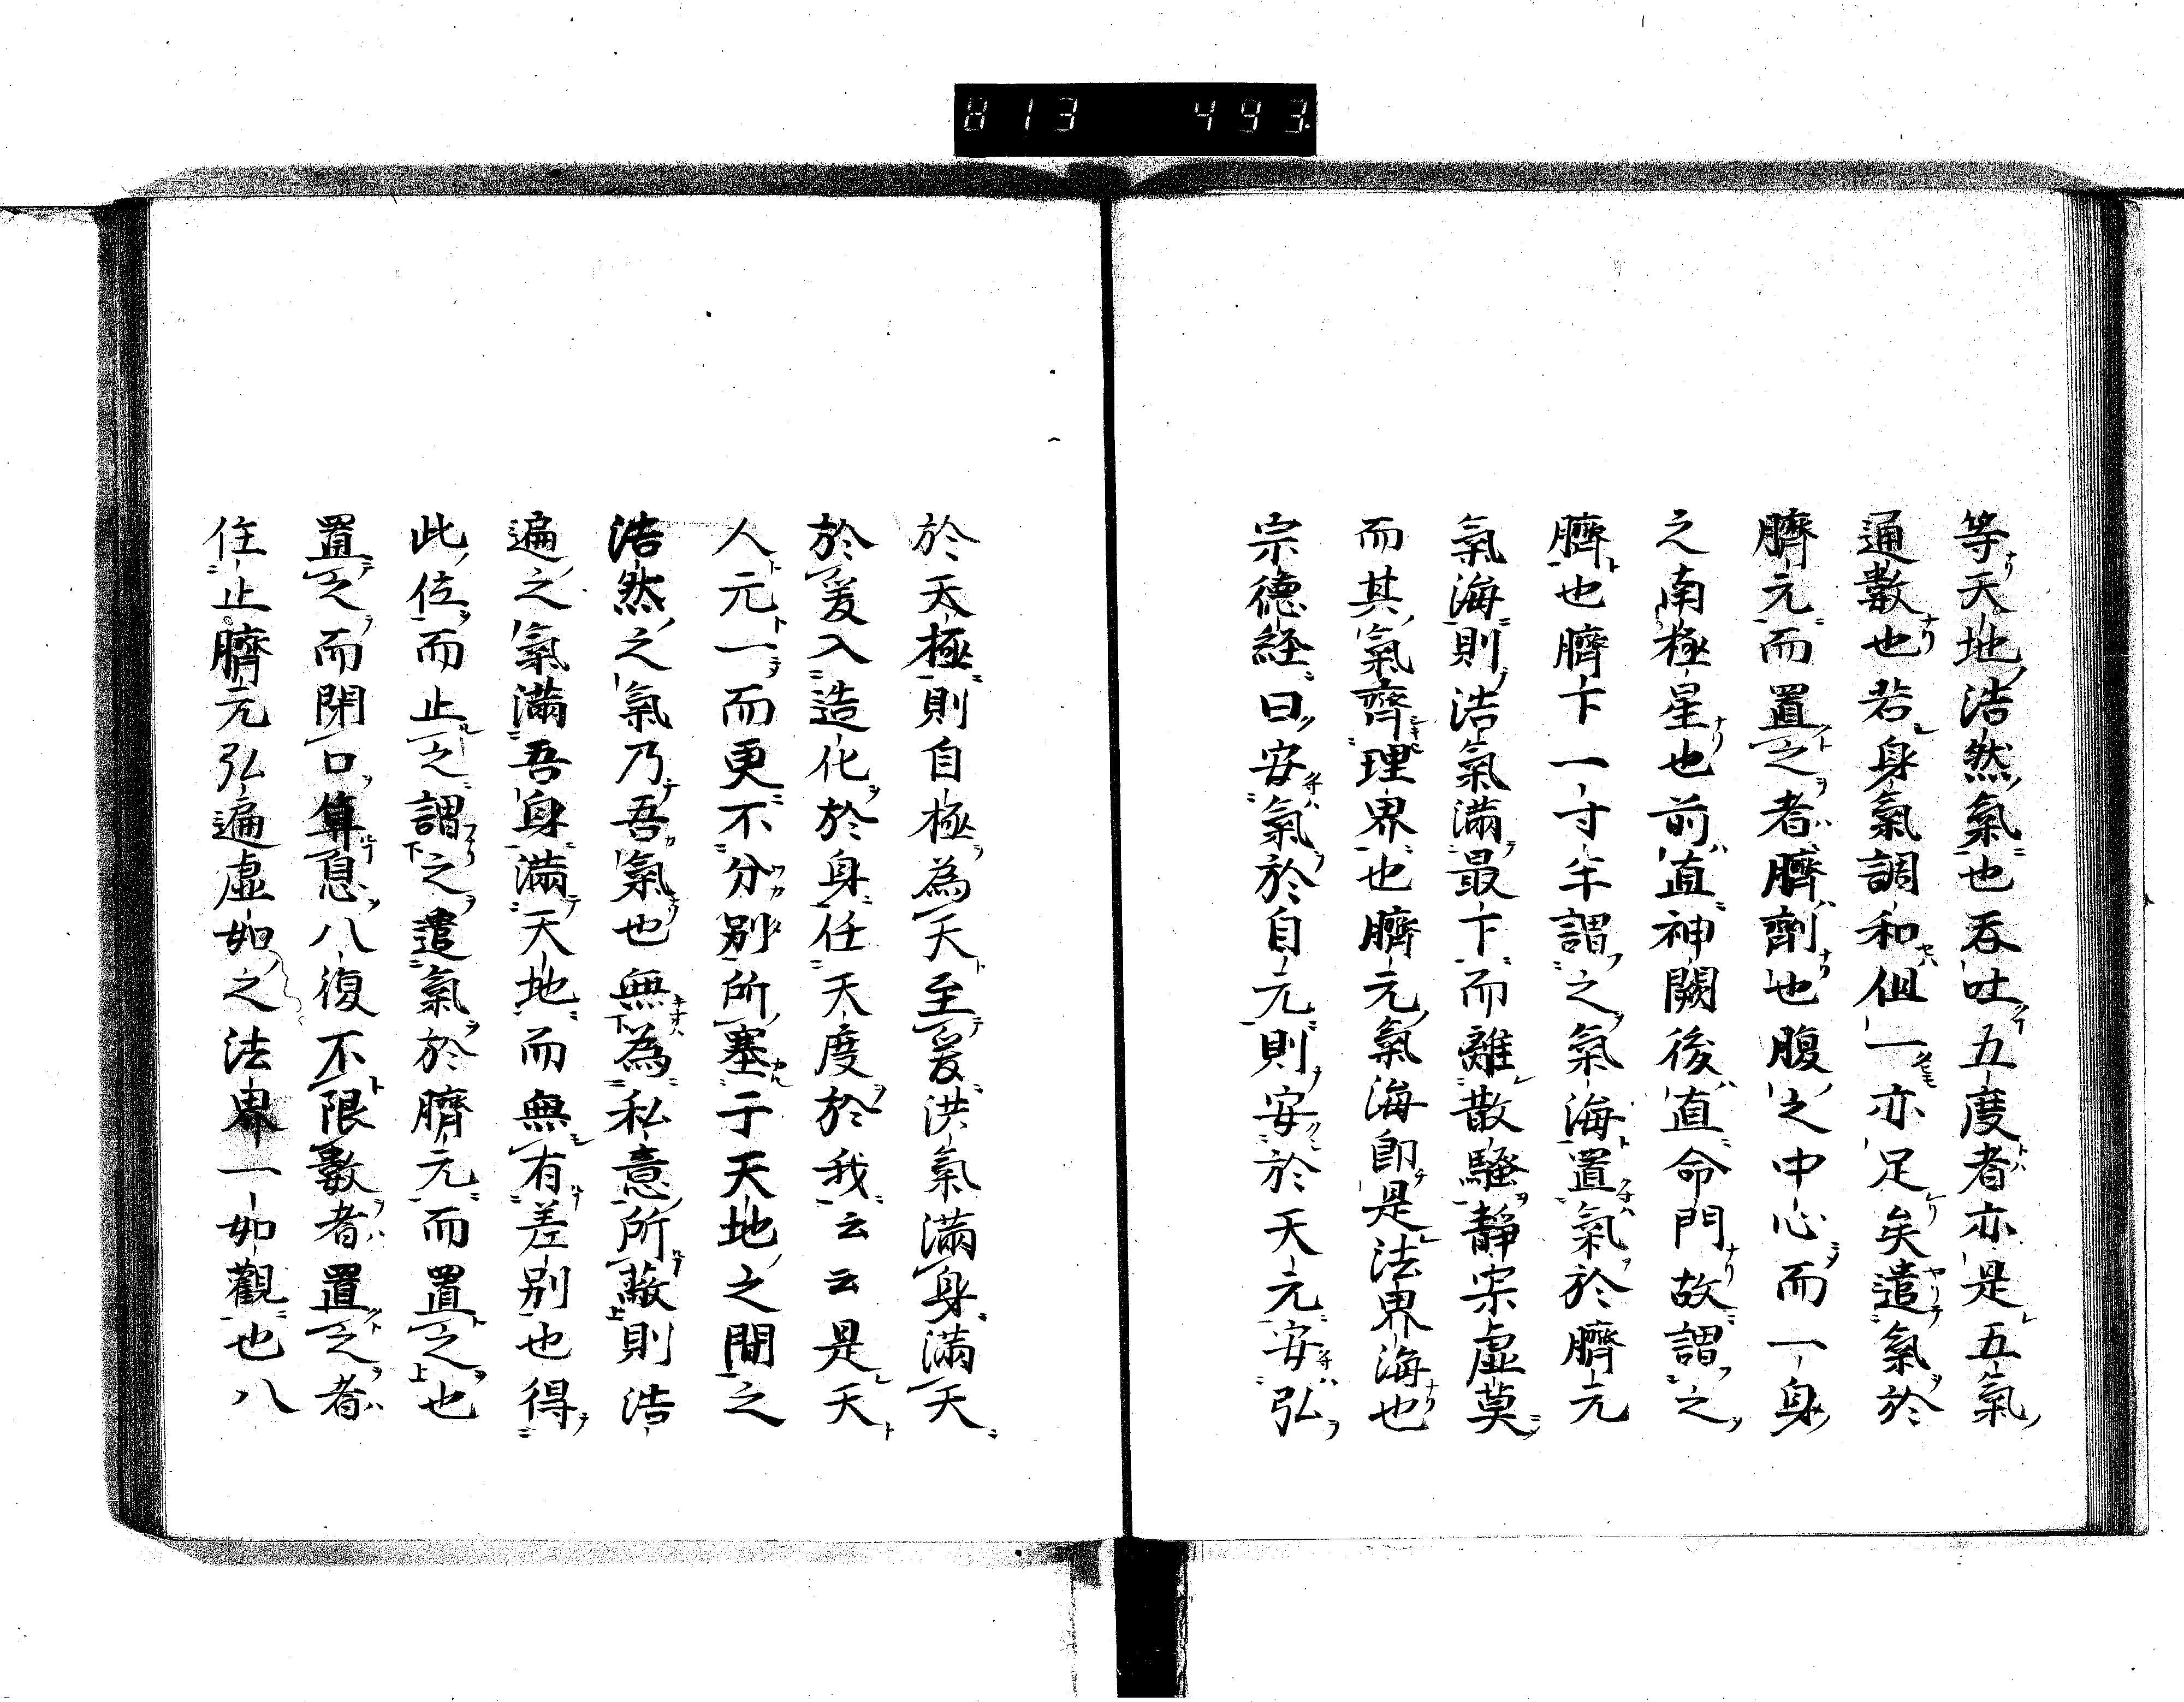 813 493
等天地浩然氣也吞吐五度者亦是五氣
通數也若身氣調和但一亦足矣遣氣於
臍元而置之者臍劑也腹之中心而一身
之南極星也前直神闕後直命門故謂之
臍也臍下一寸半謂之氣海置氣於臍元
氣海則浩氣滿最下而離散騷靜宗虛莫
而其氣齊理界也臍元氣海即是法界海也
宗德経曰安氣於自元則安於天元安弘
於天極則自極為天至爰洪氣滿身滿天
於爰入造化於身任天度於我云云是天
人元一而更不分別所塞于天地之間之
浩然之氣乃吾氣也無為私意所蔽則浩
遍之氣滿吾身滿天地而無有差別也得
此位而止之謂之遣氣於臍元而置之也
置之而閉口算息八復不限數者置之者
住止臍元弘遍虛如之法界一如觀也八